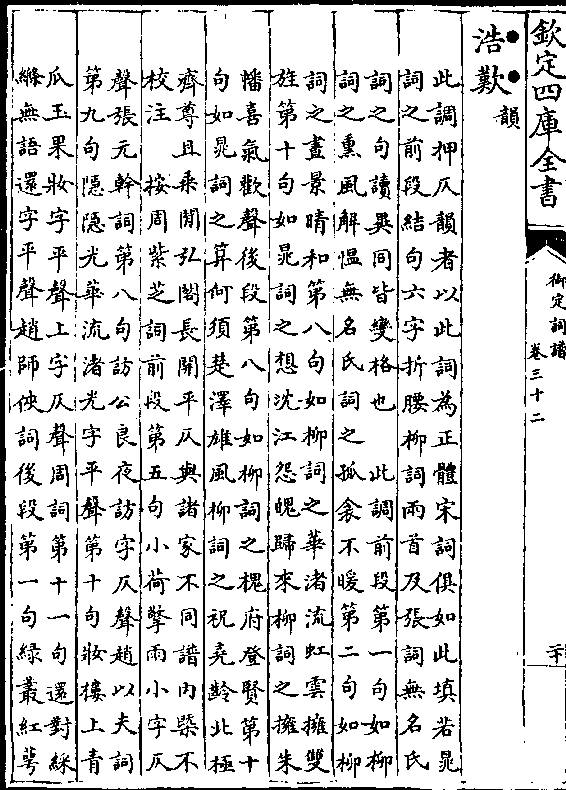 欽定四庫全書
御定詞譜
卷三十二
二十
浩歎韻
此調押仄韻者以此詞為正體宋詞俱如此填若晁
詞之前段結句六字折腰柳詞兩首及張詞無名氏
詞之句讀異同皆變格也　此調前段第一句如柳
詞之熏風解慍無名氏詞之孤衾不暖第二句如柳
詞之晝景晴和第八句如柳詞之華渚流虹雲擁雙
旌第十句如晁詞之想沈江怨魄歸來柳詞之擁朱
幡喜氣歡聲後段第八句如柳詞之槐府登賢第十
句如晁詞之算何須楚澤雄風柳詞之祝堯齡北極
齊尊且乘閒弘閣長開平仄與諸家不同譜內槩不
校注　按周紫芝詞前段第五句小荷擎雨小字仄
聲張元幹詞第八句訪公良夜訪字仄聲趙以夫詞
第九句隱隱光華流渚光字平聲第十句妝樓上青
瓜玉果妝字平聲上字仄聲周詞第十一句還對綵
絛無語還字平聲趙師俠詞後段第一句綠叢紅萼